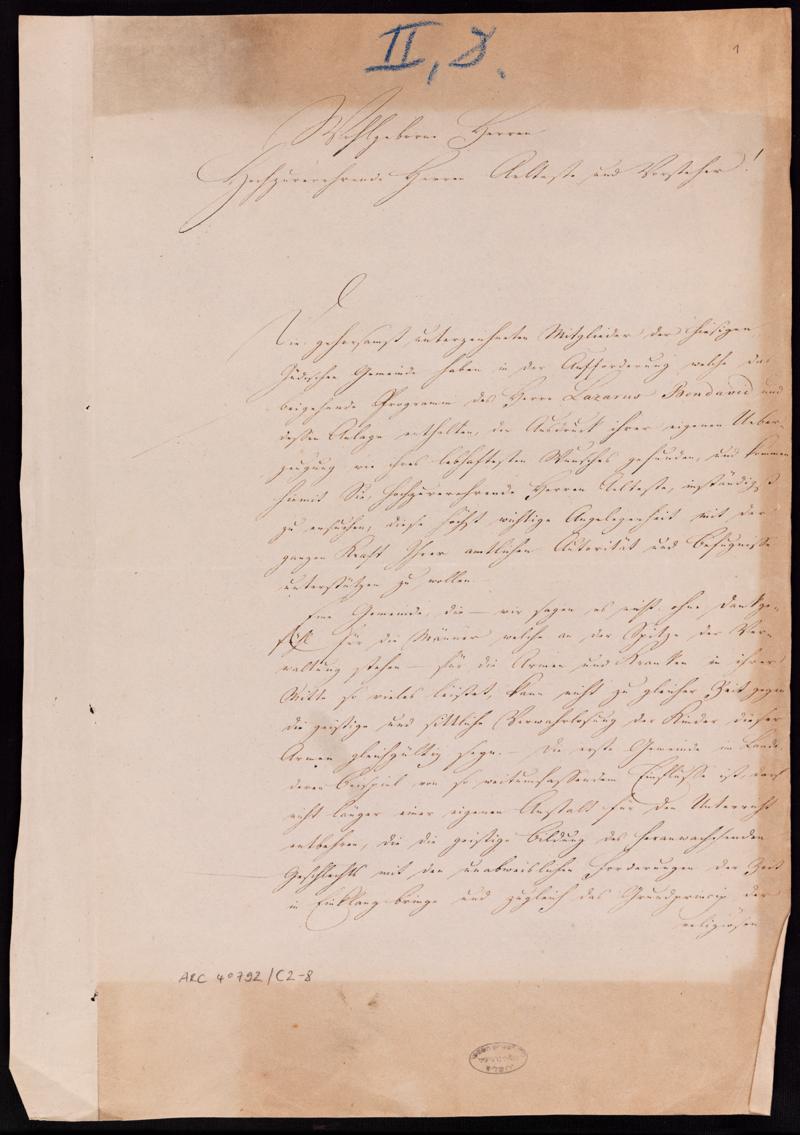 II, 8.
1
Wohlgeborne Herren
Hochzuverehrende Herren Aelteste und Vorsteher!
Die gehorsamst unterzeichneten Mitglieder der hiesigen
Jüdischen Gemeinde haben in der Aufforderung welche das
beigehende Programm des Herrn Lazarus Bendavid und
dessen Anlage enthalten, den Ausdruck ihrer eigenen Ueber-
zeugung wie ihres lebhaftesten Wunsches gefunden, und kommen
hiemit Sie, Hochzuverehrende Herren Aelteste, inständigst
zu ersuchen, diese höchst wichtige Angelegenheit mit der
ganzen Kraft Ihrer amtlichen Autorität und Befugnisse
unterstützen zu wollen.
Eine Gemeinde, die — wir sagen es nicht ohne Dankge-
fühl für die Männer welche an der Spitze der Ver-
waltung stehen — für die Armen und Kranken in ihrer
Mitte so vieles leistet, kann nicht zu gleicher Zeit gegen
die geistige und sittliche Verwahrlosung der Kinder dieser
Armen gleichgültig seyn. — Die erste Gemeinde im Lande,
deren Beispiel von so weitumfassendem Einflusse ist, darf
nicht länger einer eigenen Anstalt für den Unterricht
entbehren, die die geistige Bildung des heranwachsenden
Geschlechts mit den unabweislichen Forderungen der Zeit
in Einklang bringe und zugleich das Grundprincip der
religiösen
ARC 4° 792/C2-8